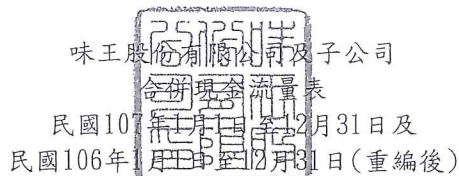 味王股份有限公司及子公司
合併現金流量表
民國107年1月1日至12月31日及
民國106年1月1日至12月31日(重編後)